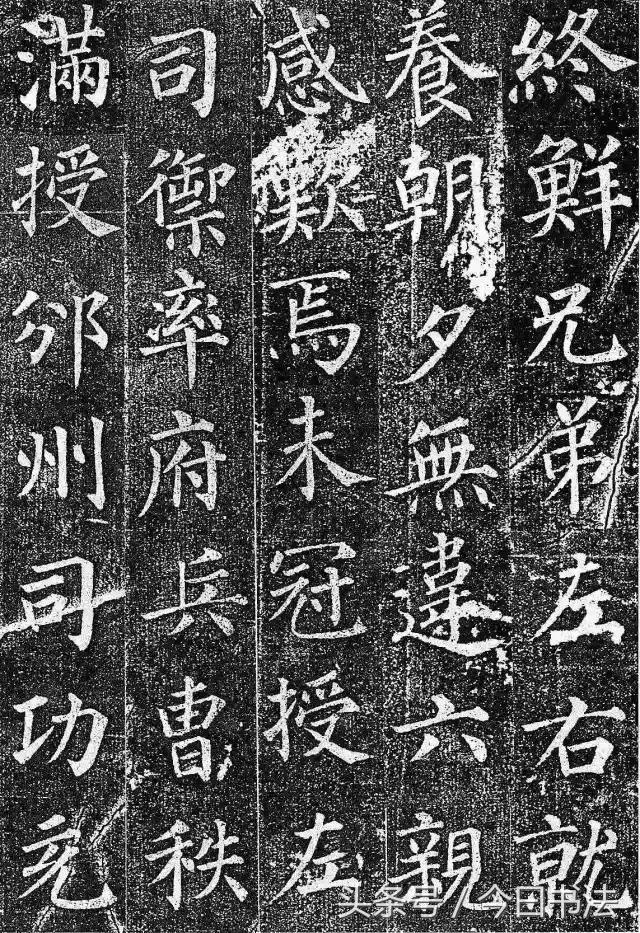 終鮮兄弟左右就
養朝夕無違六親
感歎焉未冠授左
司禦率府兵曹秩
滿授邠州司功充
头条号/今日书法